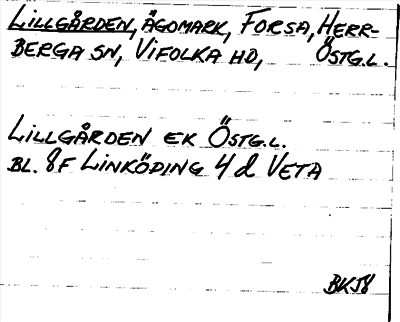 LILLGÅRDEN, ÄGOMARK, FORSA, HERR-
BERGA SN, VIFOLKA HD, ÖSTG.L.
LILLGÅRDEN EK ÖSTG.L.
BL. 8F LINKÖDING 4 d VETA
BKJ8